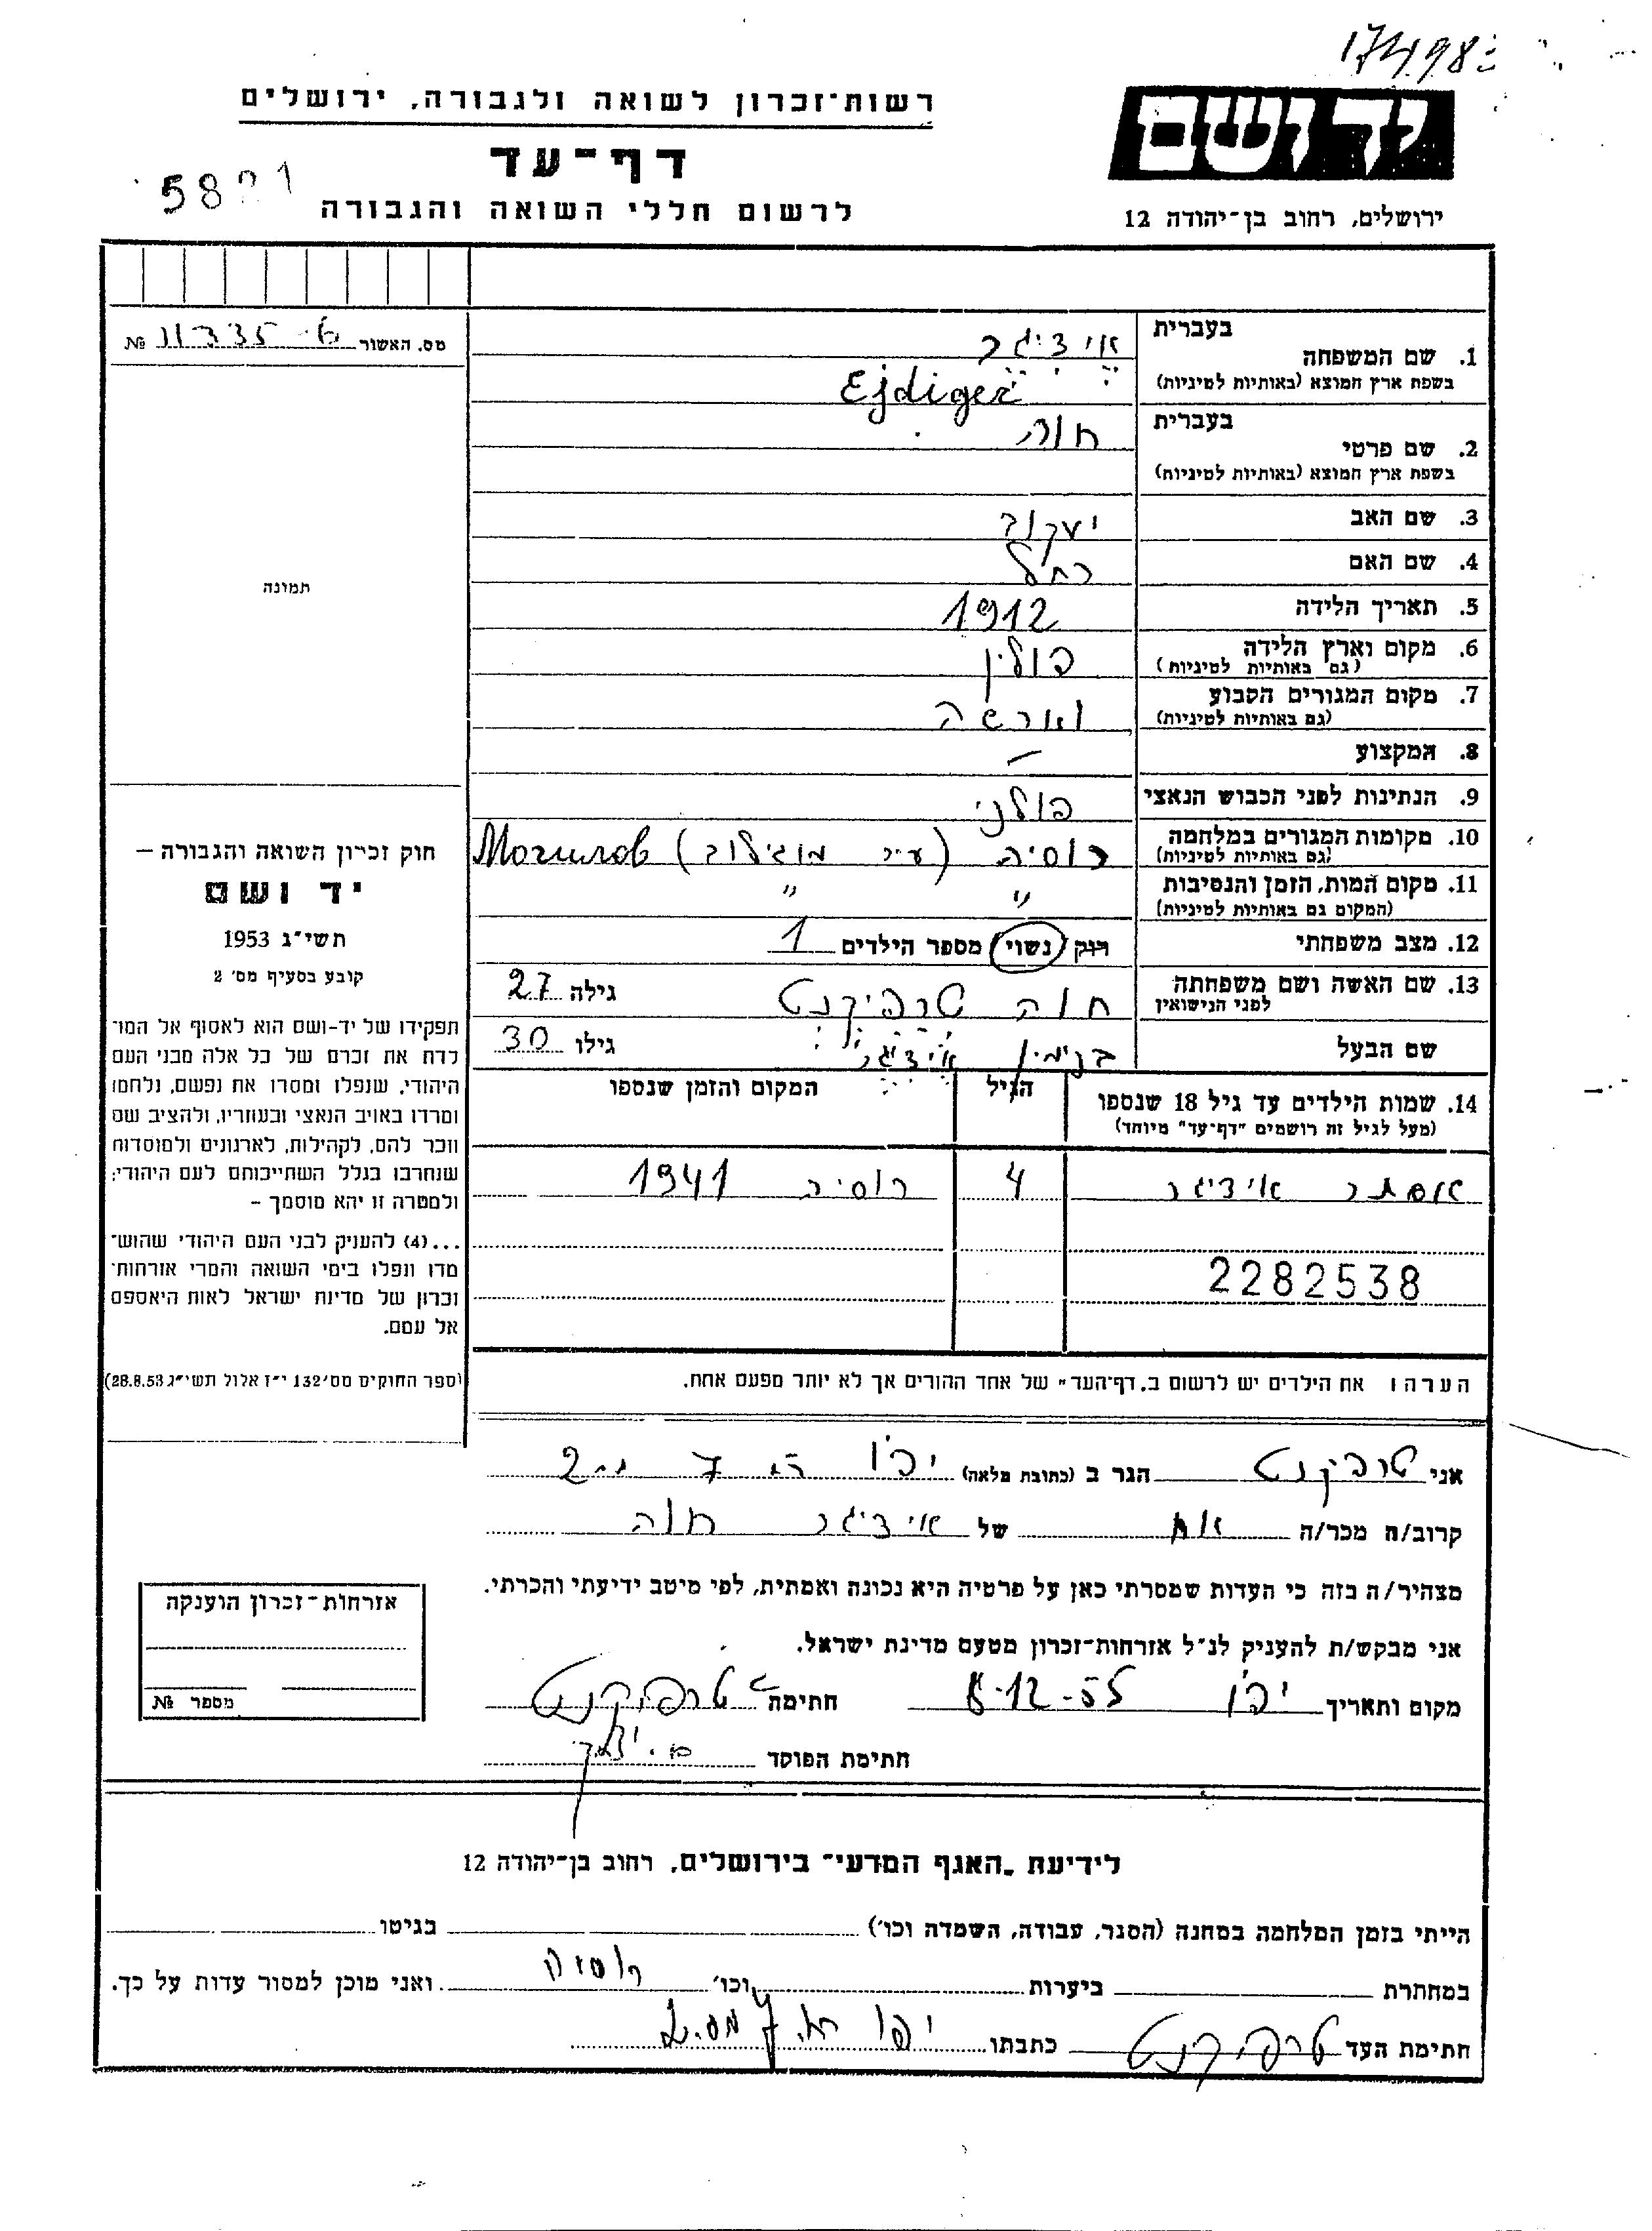 174983
רשות־זכרון לשואה ולגבורה, ירושלים
יד ושם
דף־עד
לרשום חללי השואה והגבורה
ירושלים, רחוב בן־יהודה 12
מס. האשור 6- 11335 №
בעברית
1. שם המשפחה
בשפת ארץ המוצא (באותיות לטיניות)
אידיגר
Ejdiger
בעברית
2. שם פרטי
בשפת ארץ המוצא (באותיות לטיניות)
חוה
3. שם האב יעקוב
4. שם האם רחל
5. תאריך הלידה 1912
6. מקום וארץ הלידה פולין
(גם באותיות לטיניות)
7. מקום המגורים הקבוע ווארשה
(גם באותיות לטיניות)
8. המקצוע –
9. הנתינות לפני הכבוש הנאצי פולני
10. מקומות המגורים במלחמה רוסיה (עיר מוגילוב) Могилов
(גם באותיות לטיניות)
11. מקום המות, הזמן והנסיבות " "
(המקום גם באותיות לטיניות)
12. מצב משפחתי רווק (נשוי) מספר הילדים 1
13. שם האשה ושם משפחתה חוה טרפיקנט גילה 27
לפני הנישואין
שם הבעל בנימין אידיגר גילו 30
14. שמות הילדים עד גיל 18 שנספו הגיל המקום והזמן שנספו
(מעל לגיל זה רושמים "דף־עד" מיוחד)
אסתר אידיגר 4 רוסיה 1941
2282538
הערה: את הילדים יש לרשום ב„דף־העד" של אחד ההורים אך לא יותר מפעם אחת.
תמונה
חוק זכרון השואה והגבורה –
יד ושם
תשי"ג 1953
קובע בסעיף מס' 2
תפקידו של יד-ושם הוא לאסוף אל המו־
לדת את זכרם של כל אלה מבני העם
היהודי, שנפלו ומסרו את נפשם, נלחמו
ומרדו באויב הנאצי ובעוזריו, ולהציב שם
וזכר להם, לקהילות, לארגונים ולמוסדות
שנחרבו בגלל השתייכותם לעם היהודי;
ולמטרה זו יהא מוסמך –
...(4) להעניק לבני העם היהודי שהוש־
מדו ונפלו בימי השואה והמרי אזרחות־
זכרון של מדינת ישראל לאות היאספם
אל עמם.
(ספר החוקים מס' 132 י"ז אלול תשי"ג 28.8.53)
אני טרפקנט הגר ב (כתובת מלאה) יפו 7
קרוב/ה מכר/ה אח של אידיגר חוה
מצהיר/ה בזה כי העדות שמסרתי כאן על פרטיה היא נכונה ואמתית, לפי מיטב ידיעתי והכרתי.
אני מבקש/ת להעניק לנ"ל אזרחות-זכרון מטעם מדינת ישראל.
מקום ותאריך יפו 8-12-55 חתימה טרפיקנט
חתימת הפוקד
אזרחות־זכרון הוענקה
מספר №
לידיעת „האגף המדעי" בירושלים, רחוב בן־יהודה 12
הייתי בזמן המלחמה במחנה (הסגר, עבודה, השמדה וכו') בגיטו
במחתרת ביערות וכו' רוסיה ואני מוכן למסור עדות על כך.
חתימת העד טרפיקנט כתבתו יפו רח. 7 מס. 2